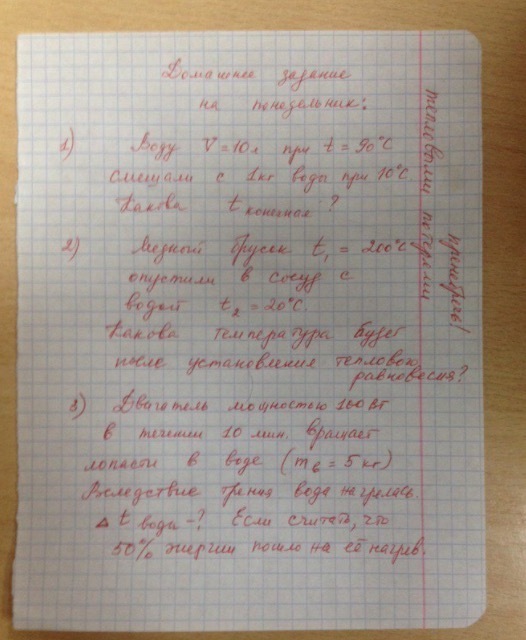 Домашнее задание
на понедельник:
1) Воду V = 10 л при t = 90°C
смешали с 1 кг воды при 10°C
Какова t конечная ?
2) Медный брусок t₁ = 200°C
опустили в сосуд с
водой t₂ = 20°C.
Какова температура будет
после установление теплового
равновесия?
3) Двигатель мощностью 100 Вт
в течении 10 мин. вращает
лопасти в воде (mв = 5 кг)
Вследствие трения вода нагрелась.
Δ t воды - ? Если считать, что
50% энергии пошло на её нагрев.
тепловыми потерями
пренебречь!